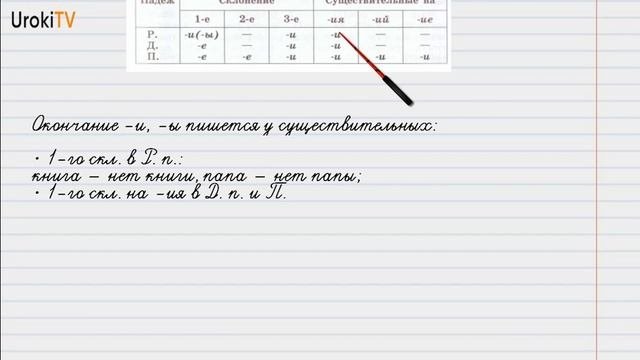 UrokiTV
Падеж Склонение Существительные на
1-е 2-е 3-е -ия -ий -ие
Р. -и(-ы) — -и -и — —
Д. -е — -и -и — —
П. -е -е -и -и -и -и
Окончание -и, -ы пишется у существительных:
• 1-го скл. в Р. п.:
книга – нет книги, папа – нет папы;
• 1-го скл. на -ия в Д. п. и П.